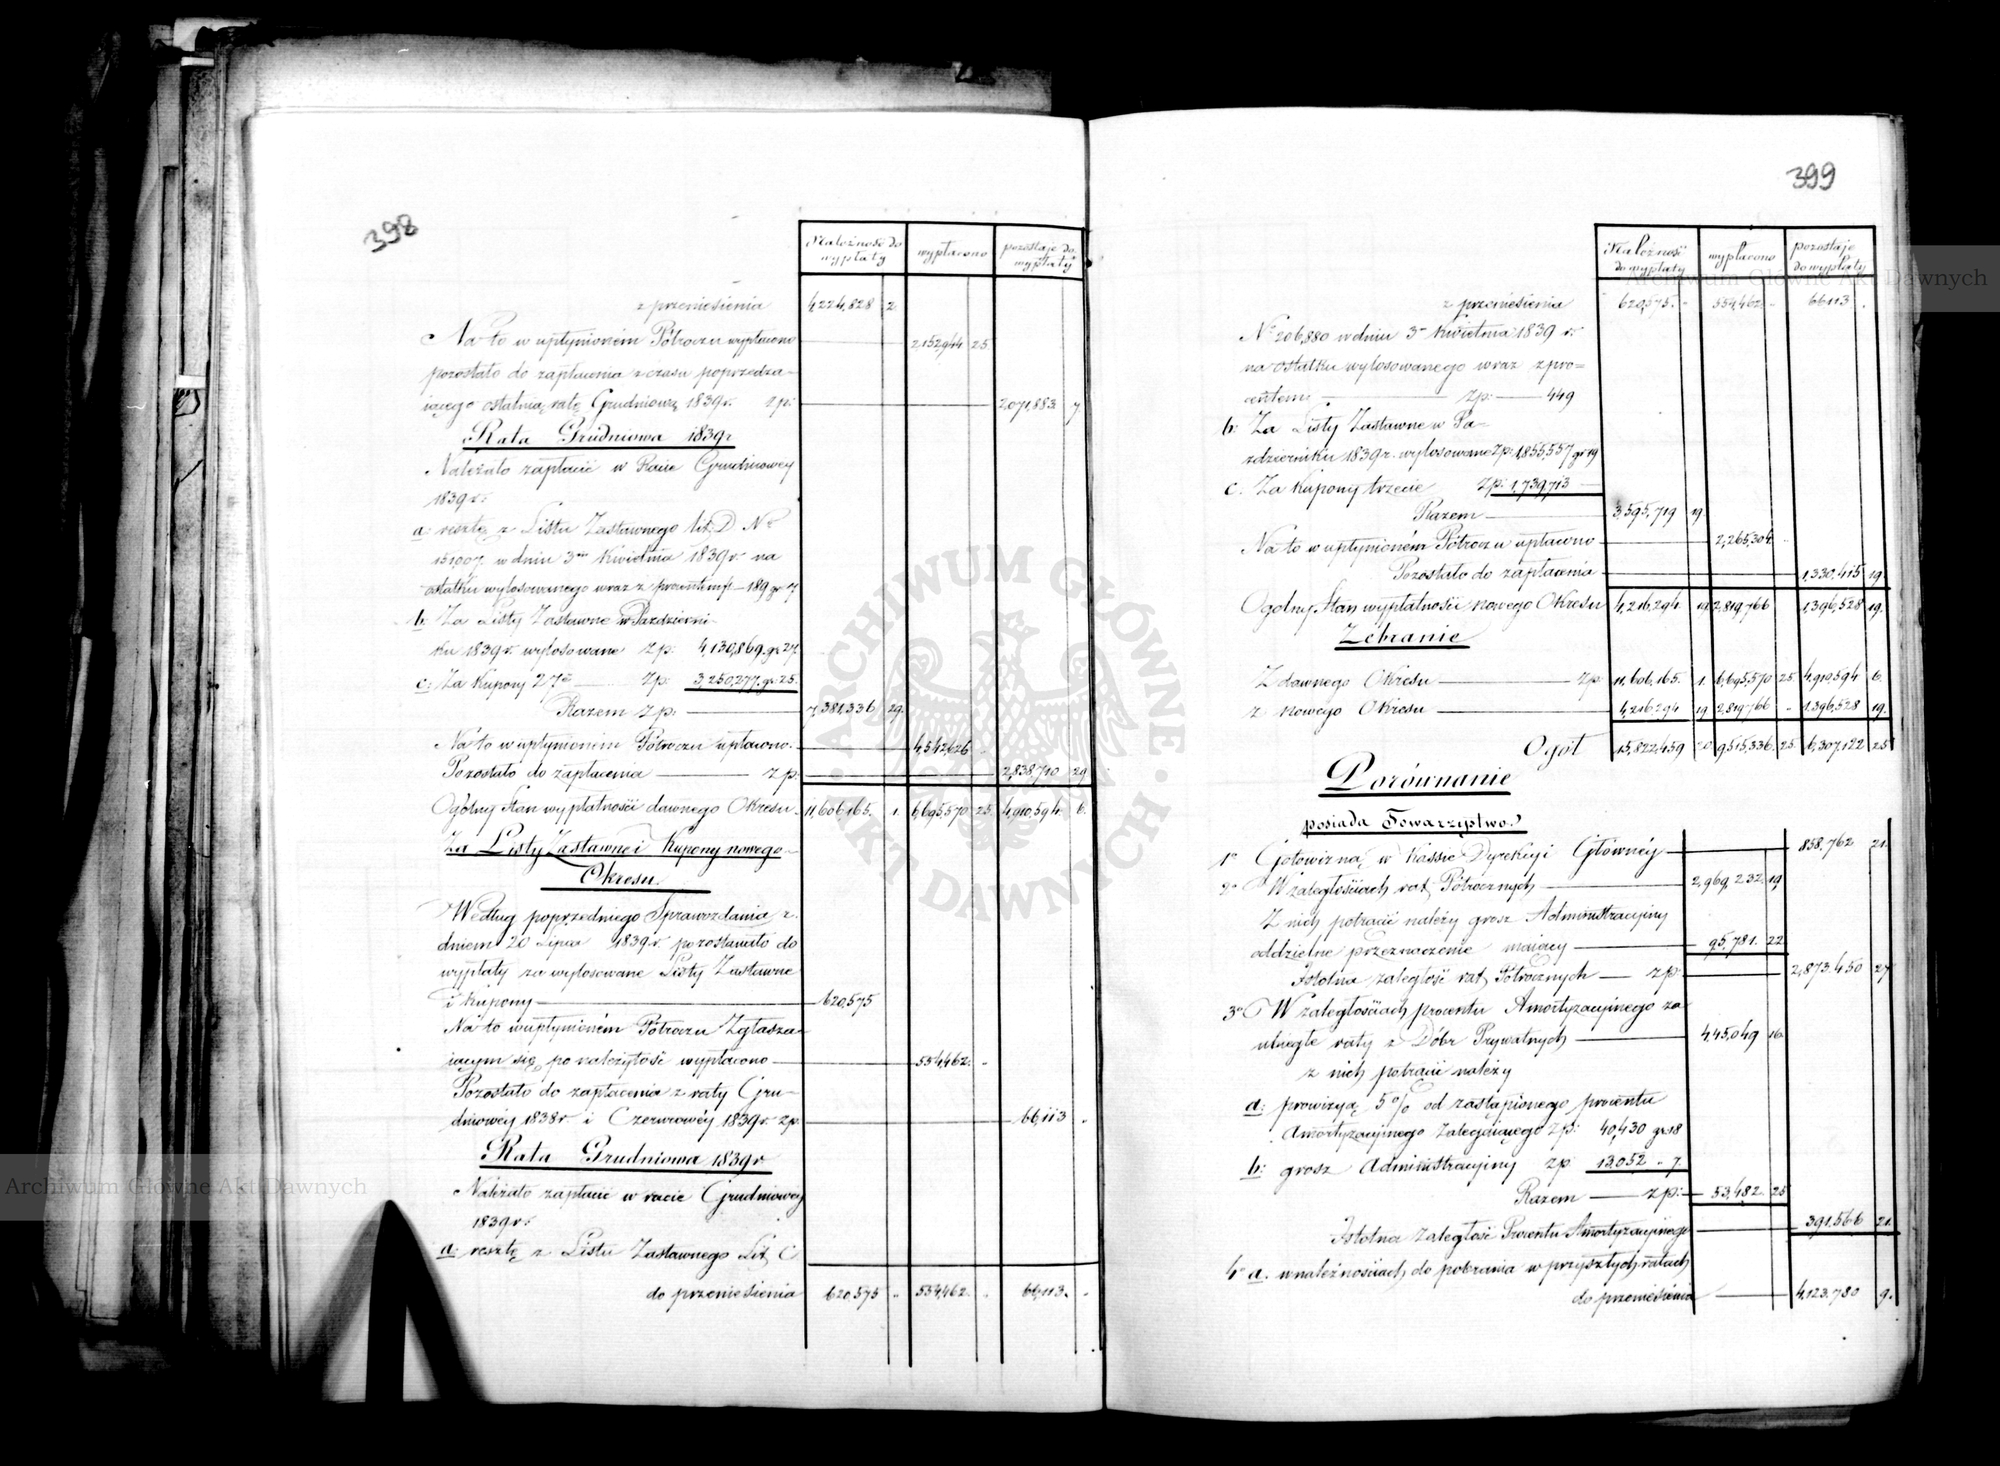 398
Należność do wypłaty
wypłacono
pozostaje do wypłaty
z przeniesienia 4,224,828 2
Na to w upłynioném Półroczu wypłacono 2,152,944 25
pozostało do zapłacenia z czasu poprzedza-
iącego ostatnią ratę Grudniową 1839 r. zp: 2,071,883 7.
Rata Grudniowa 1839 r
Należało zapłacić w Racie Grudniowey
1839 r:
a: resztę z Listu Zastawnego lit: D No
151007. w dniu 3m Kwietnia 1839 r. na
ostatku wylosowanego wraz z procentem zp – 189 gr 7
b: Za Listy Zastawne w Październi-
ku 1839 r. wylosowane zp: 4,130,869. gr 27.
c: Za Kupony 27e zp: 3,250,277. gr: 25.
Razem zp: 7,381,336 29.
Na to w upłynioném Półroczu upłacono. 4,542,626 .
Pozostało do zapłacenia zp. 2,838,710 29
Ogólny Stan wypłatności dawnego Okresu. 11,606,165. 1. 6,695,570 25. 4,910,594. 6.
Za Listy Zastawne i Kupony nowego
Okresu.
Według poprzedniego Sprawozdania z
dniem 20 Lipca 1839 r. pozostawało do
wypłaty za wylosowane Listy Zastawne
i Kupony 620,575
Na to w upłynioném Półroczu Zgłasza-
iącym się, po należytość wypłacono 554,462. .
Pozostało do zapłacenia z raty Gru-
dniowéy 1838 r i Czerwcowéy 1839 r. zp. 66,113 .
Rata Grudniowa 1839 r
Należało zapłacić w racie Grudniowey
1839 r:
a: resztę z Listu Zastawnego Lit, C
do przeniesienia 620,575 . 554,462. . 66,113. .
399
Należność do wypłaty
wypłacono
pozostaje do wypłaty
z przeniesienia 620,575. . 554,462 . 66113 .
No 206,880 w dniu 3m Kwietnia 1839 r:
na ostatku wylosowanego wraz z pro=
centem zp: 449
b: Za Listy Zastawne w Pa-
zdzierniku 1839 r. wylosowane zp: 1,855,557 gr 19
c. Za Kupony trzecie zp: 1,739,713
Razem 3,595,719 19
Na to w upłynioném Półroczu upłacono 2,265,304 .
Pozostało do zapłacenia 1,330,415 19.
Ogólny Stan wypłatności nowego Okresu 4,216,294 19 2,819,766 1,396,528 19.
Zebranie
Z dawnego Okresu zp 11,606,165. 1. 6,695,570 25. 4,910,594 6.
z nowego Okresu 4,216,294 19 2,819,766 . 1,396,528 19.
Ogół 15,822,459 20 9,515,336. 25. 6,307,122 25
Porównanie
posiada Towarzystwo
1o Gotowizną w Kassie Dyrekcyi Głównéy 858,762 21.
2o W zaległościach rat Półrocznych 2,969,232. 19
Z nich potrącić należy grosz Administracyiny
oddzielne przeznaczenie maiący 95,781. 22
Istotna zaległość rat Półrocznych zp: 2,873,450 27
3o W zaległościach procentu Amortyzacyjnego za
ubiegłe raty z Dóbr Prywatnych 445,049 16.
z nich potrącić należy
a: prowizyą 5% od zastąpionego procentu
Amortyzacyjnego zalegaiącego zp: 40,430 gr 18
b: grosz Administracyiny zp 13,052 „ 7
Razem zp: 53,482. 25
Istotna zaległość Procentu Amortyzacyjnego 391,566 21.
4o a. w należnościach do pobrania w przyszłych ratach
do przeniesienia 4,123,780 9.
ARCHIWUM GŁÓWNE AKT DAWNYCH
Archiwum Główne Akt Dawnych
Archiwum Główne Akt Dawnych